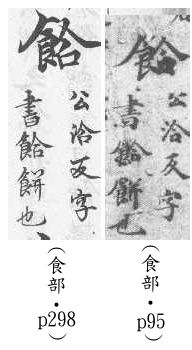 餄
公洽反字
書餄餅也
（食部・p95）
餄
公洽反字
書餄餅也
（食部・p298）